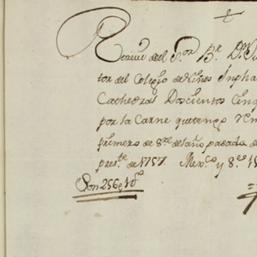 Receiví del S.or B.r D.n
tor del Colegio de Niños Inpha
Cathedral Doscientos Cinq
por la Carne que tengo rem
primero de 8.re del año pasado d
pres.te de 1757. Mex.co y 8.re 1
Son 256 p